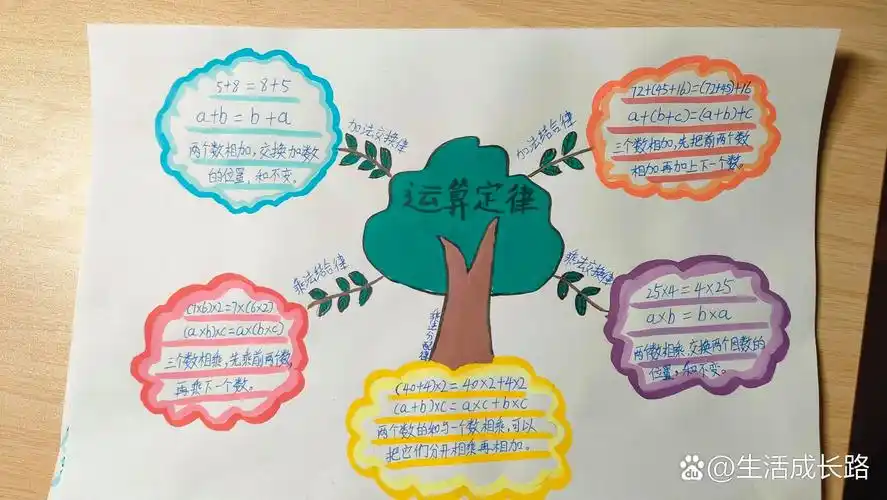 运算定律
加法交换律
5+8=8+5
a+b=b+a
两个数相加,交换加数
的位置,和不变。
加法结合律
72+(45+16)=(72+45)+16
a+(b+c)=(a+b)+c
三个数相加,先把前两个数
相加再加上下一个数。
乘法结合律
(7×6)×2=7×(6×2)
(a×b)×c=a×(b×c)
三个数相乘,先乘前两个数,
再乘下一个数。
乘法交换律
25×4=4×25
a×b=b×a
两个数相乘,交换两个因数的
位置,和不变。
乘法分配律
(40+4)×2=40×2+4×2
(a+b)×c=a×c+b×c
两个数的和与一个数相乘,可以
把它们分开相乘再相加。
Bai du @生活成长路